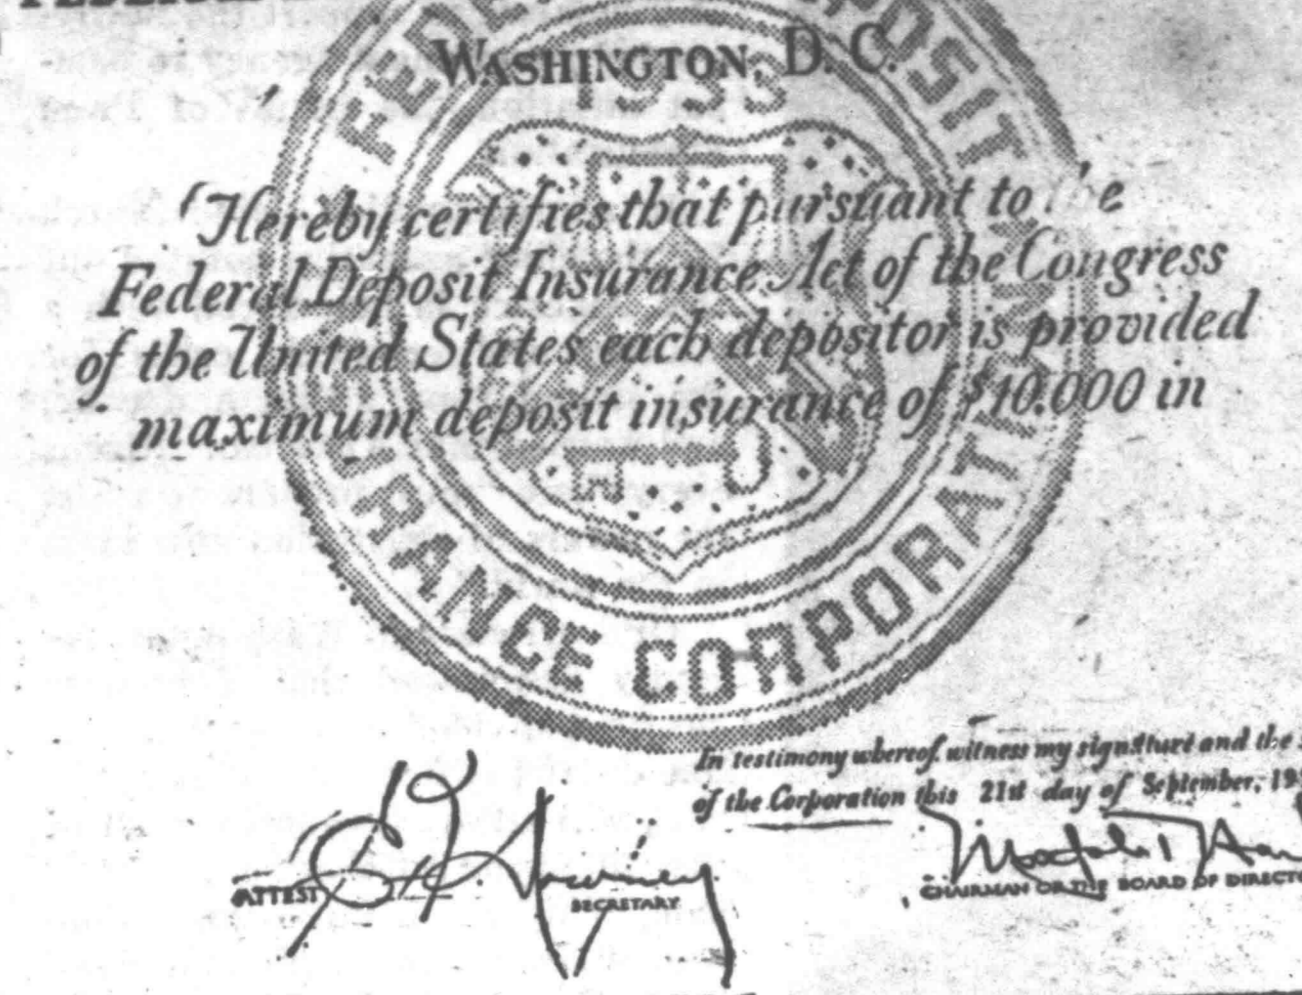 WASHINGTON, D. C.
1933
FEDERAL DEPOSIT INSURANCE CORPORATION
Hereby certifies that pursuant to the
Federal Deposit Insurance Act of the Congress
of the United States each depositor is provided
maximum deposit insurance of $10,000 in
In testimony whereof, witness my signature and the
of the Corporation this 21st day of September, 19
ATTEST
SECRETARY
CHAIRMAN OF THE BOARD OF DIRECTO